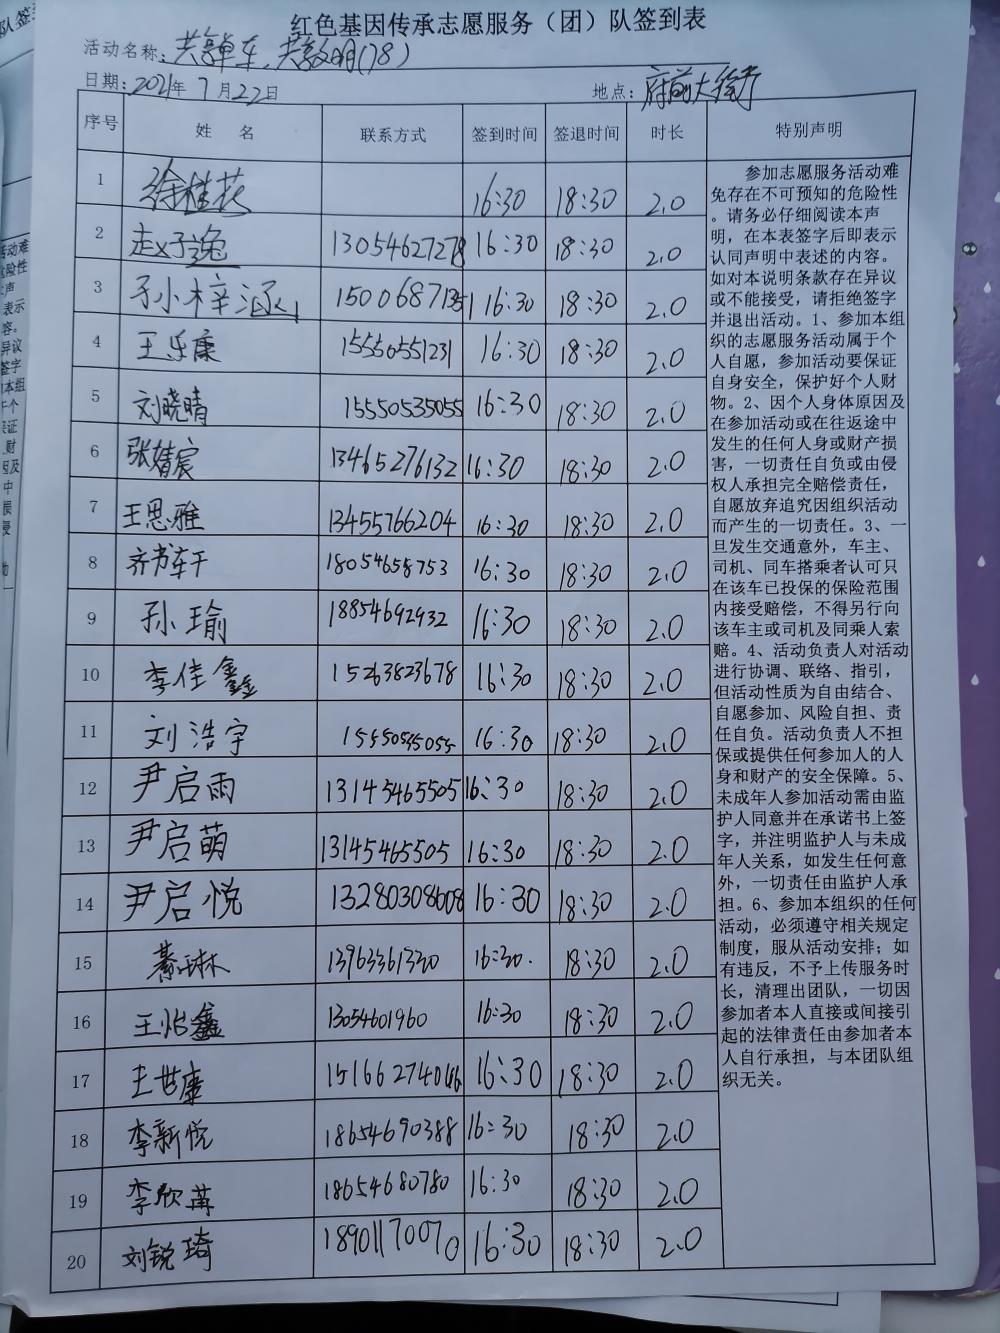 红色基因传承志愿服务（团）队签到表
活动名称：共享单车，共享文明（78）
日期：2021年7月22日 地点：府前大街
序号 姓名 联系方式 签到时间 签退时间 时长 特别声明
1 徐桂花 16:30 18:30 2.0
2 赵子逸 13054627278 16:30 18:30 2.0
3 孙小梓涵 15006871351 16:30 18:30 2.0
4 王乐康 15550551231 16:30 18:30 2.0
5 刘晓晴 15550535055 16:30 18:30 2.0
6 张婧宸 13465276132 16:30 18:30 2.0
7 王思雅 13455766204 16:30 18:30 2.0
8 齐书车干 18054658753 16:30 18:30 2.0
9 孙瑜 18854692932 16:30 18:30 2.0
10 李佳鑫 15263823678 16:30 18:30 2.0
11 刘浩宇 16:30 18:30 2.0
12 尹启雨 13145465505 16:30 18:30 2.0
13 尹启萌 13145465505 16:30 18:30 2.0
14 尹启悦 13280308608 16:30 18:30 2.0
15 綦琳 13963361320 16:30. 18:30 2.0
16 王怡鑫 13054601960 16:30 18:30 2.0
17 王世康 16:30 18:30 2.0
18 李新悦 18654690388 16:30 18:30 2.0
19 李欣苒 18654680780 16:30 18:30 2.0
20 刘锐琦 18901170070 16:30 18:30 2.0
参加志愿服务活动难
免存在不可预知的危险性
。请务必仔细阅读本声
明，在本表签字后即表示
认同声明中表述的内容。
如对本说明条款存在异议
或不能接受，请拒绝签字
并退出活动。1、参加本组
织的志愿服务活动属于个
人自愿，参加活动要保证
自身安全，保护好个人财
物。2、因个人身体原因及
在参加活动或在往返途中
发生的任何人身或财产损
害，一切责任自负或由侵
权人承担完全赔偿责任，
自愿放弃追究因组织活动
而产生的一切责任。3、一
旦发生交通意外，车主、
司机、同车搭乘者认可只
在该车已投保的保险范围
内接受赔偿，不得另行向
该车主或司机及同乘人索
赔。4、活动负责人对活动
进行协调、联络、指引，
但活动性质为自由结合、
自愿参加、风险自担、责
任自负。活动负责人不担
保或提供任何参加人的人
身和财产的安全保障。5、
未成年人参加活动需由监
护人同意并在承诺书上签
字，并注明监护人与未成
年人关系，如发生任何意
外，一切责任由监护人承
担。6、参加本组织的任何
活动，必须遵守相关规定
制度，服从活动安排；如
有违反，不予上传服务时
长，清理出团队，一切因
参加者本人直接或间接引
起的法律责任由参加者本
人自行承担，与本团队组
织无关。